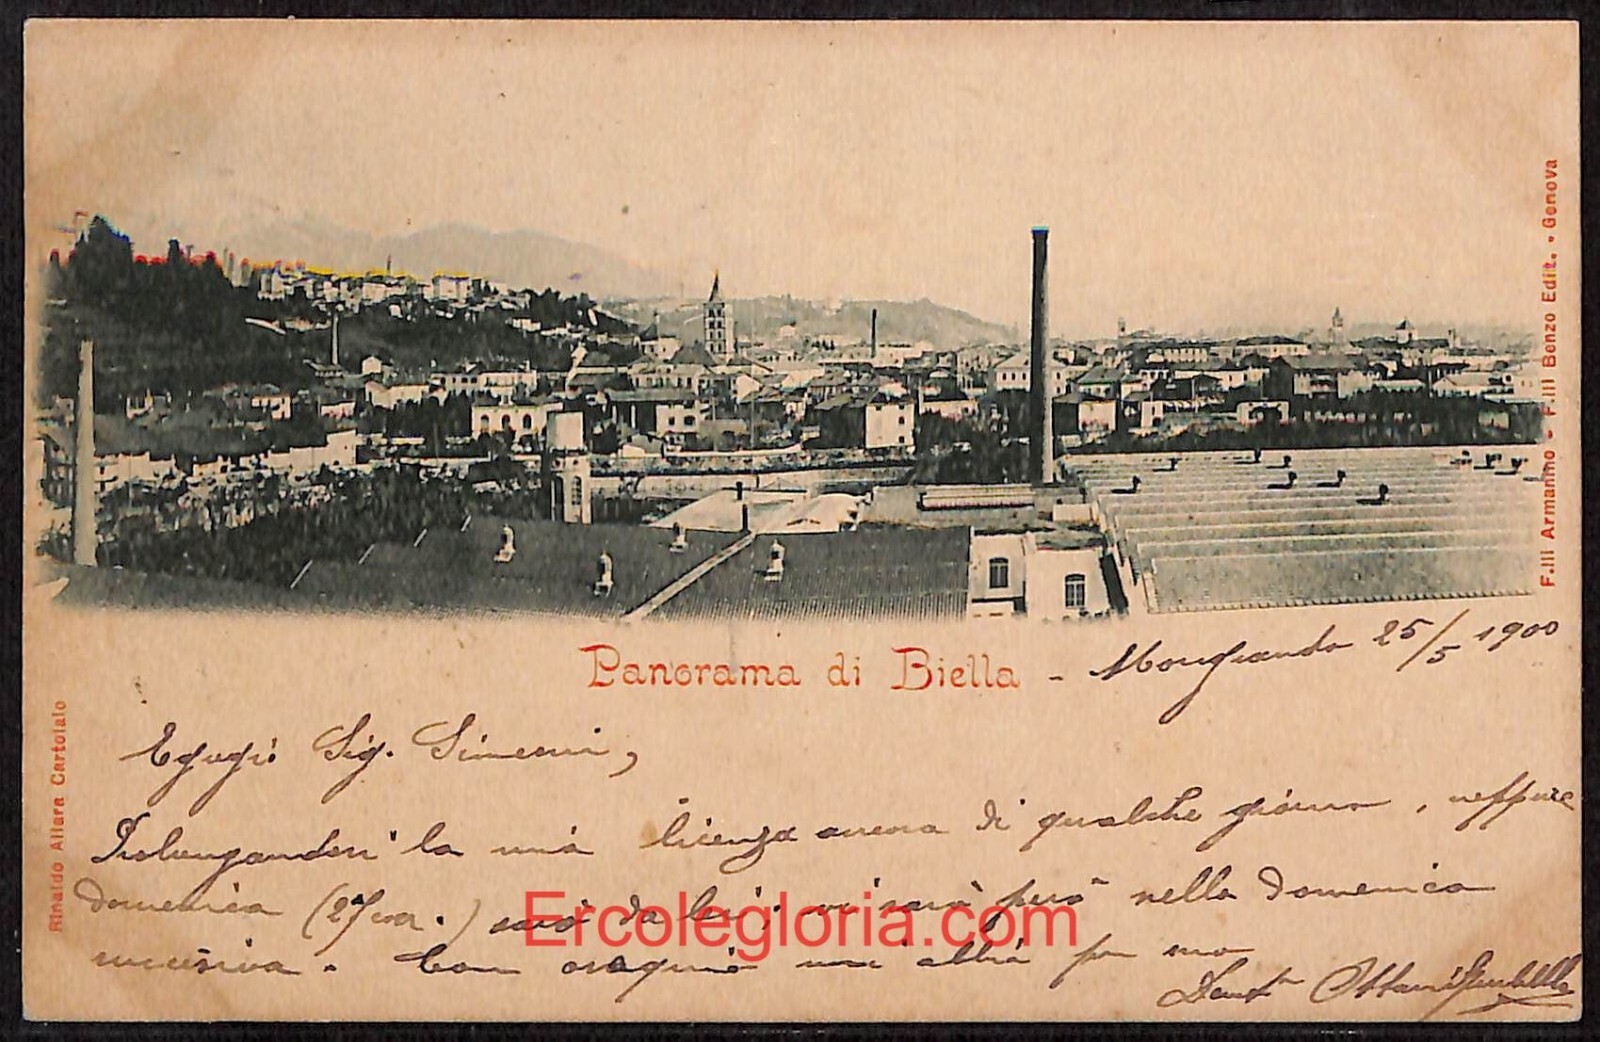 Panorama di Biella - Mongrando 25/5 1900
Egregi. Sig. Simeoni,
Prolungandosi la mia licenza ancora di qualche giorno, neppure
domenica (27 cor.) sarò da lei; vi sarò però nella domenica
successiva. Con ossequio mi abbia per suo
Ercolegloria.com
F.lli Armanino - F.lli Benzo Edit. - Genova
Rinaldo Allara Cartolaio